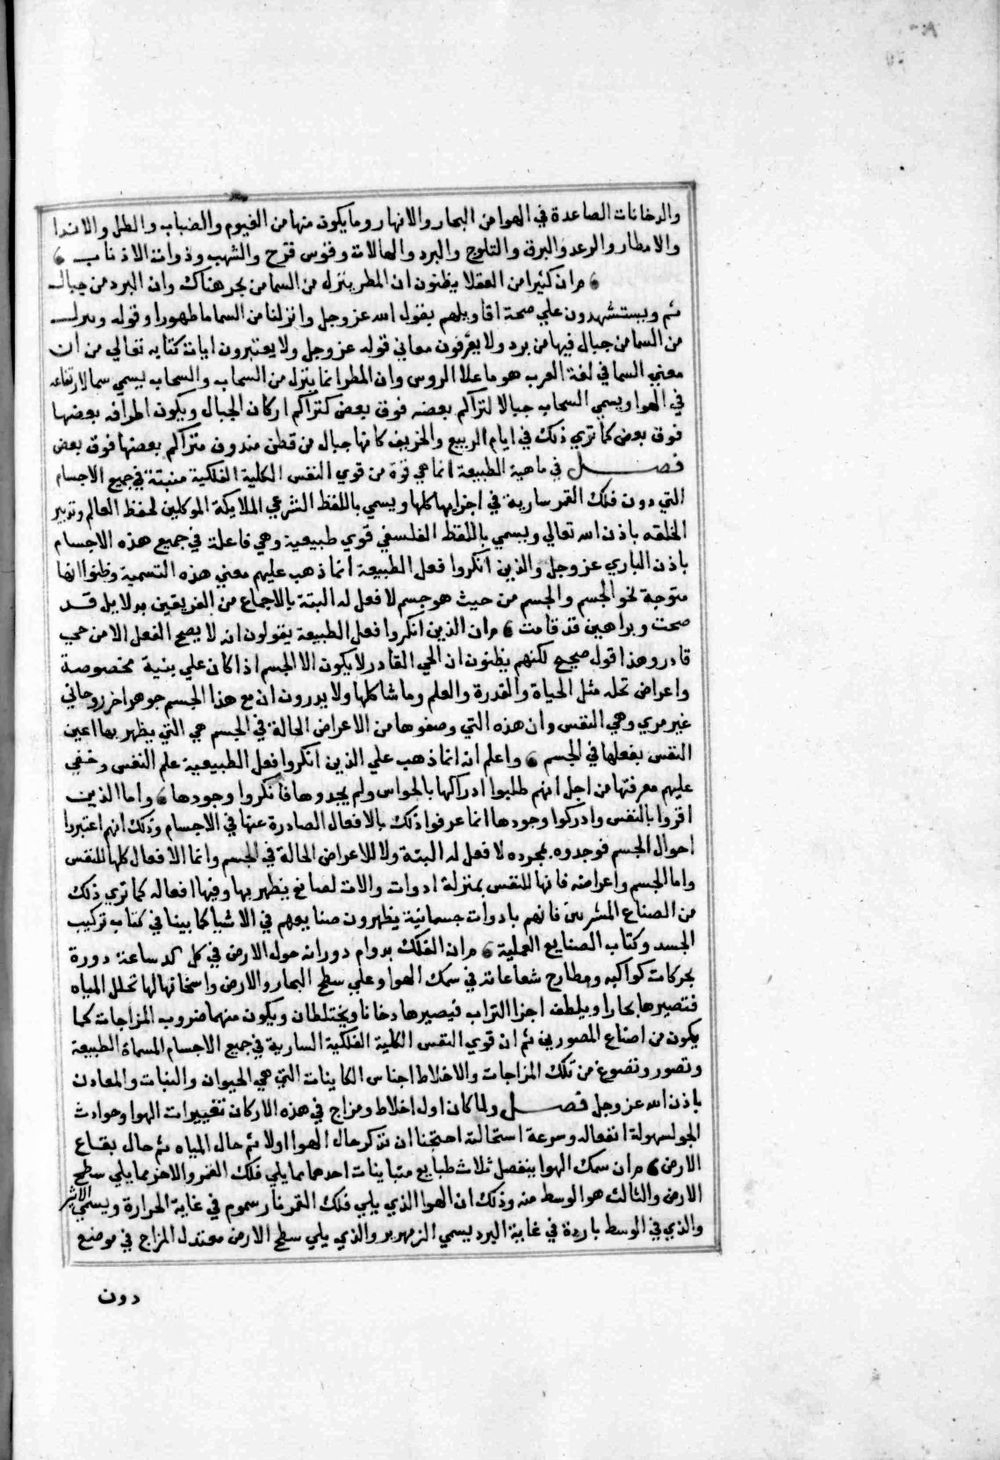 والدخانات الصاعدة في الهوا من البحار والانهار وما يكون منها من الغيوم والضباب والطل والاندا
والامطار والرعد والبرق والثلوج والبرد والهالات وقوس قزح والشهب وذوات الاذناب
من ان كثيرا من العقلا يظنون ان المطر ينزل من السما من بحر هناك وان البرد من جبال
ثم ويستشهدون علي صحة اقاويلهم بقول الله عز وجل وانزلنا من السما ما طهورا وقوله وينزل
من السما من جبال فيها من برد ولا يعرفون معاني قوله عز وجل ولا يعتبرون ايات كتابه تعالي من ان
معني السما في لغة العرب هو ما علا الروس وان المطر انما ينزل من السحاب والسحاب يسمي سما لارتفاعه
في الهوا ويسمي السحاب جبالا لتراكم بعضه فوق بعض كتراكم اركان الجبال ويكون اطرافه بعضها
فوق بعض كما تري ذلك في ايام الربيع والخريف كانها جبال من قطن مندوف متراكم بعضها فوق بعض
فصل في ماهية الطبيعة انما هي قوة من قوي النفس الكلية الفلكية منبثة في جميع الاجسام
التي دون فلك القمر سارية في اجزايها كلها ويسمي باللفظ الشرعي الملايكة الموكلين لحفظ العالم وتدبير
الخلقه باذن الله تعالي ويسمي باللفظ الفلسفي قوي طبيعية وهي فاعلة في جميع هذه الاجسام
باذن الباري عز وجل والذين انكروا فعل الطبيعة انما ذهب عليهم معني هذه التسمية وظنوا انها
متوجة نحو الجسم والجسم من حيث هو جسم لا فعل له البتة بالاجماع من الفريقين بدلايل قد
صحت وبراهين قد قامت من ان الذين انكروا فعل الطبيعة يقولون انه لا يصح الفعل الا من حي
قادر وهذا قول صحيح لكنهم يظنون ان الحي القادر لا يكون الا الجسم اذا كان علي بنية مخصوصة
واعراض تحله مثل الحياة والقدرة والعلم وما شاكلها ولا يدرون ان مع هذا الجسم جوهرا اخر روحاني
غير مري وهي النفس وان هذه التي وصفوها من الاعراض الحالة في الجسم هي التي يظهر بها اعين
النفس بفعلها في الجسم واعلم انه انما ذهب علي الذين انكروا فعل الطبيعية علم النفس وخفي
عليهم معرفتها من اجل انهم طلبوا ادراكها بالحواس ولم يجدوها فانكروا وجودها واما الذين
اقروا بالنفس وادركوا وجودها انما عرفوا ذلك بالافعال الصادرة عنها في الاجسام وذلك انهم اعتبروا
احوال الجسم فوجدوه بمجرده لا فعل له البتة ولا للاعراض الحالة في الجسم وانما الافعال كلها للنفس
واما الجسم واعراضه فانها للنفس بمنزلة ادوات والات لصانع يظهر بها وفيها افعاله كما تري ذلك
من الصناع البشريين فانهم بادوات جسمانية يظهرون صنايعهم في الاشيا كما بينا في كتاب تركيب
الجسد وكتاب الصنايع العملية من ان الفلك بدوام دورانه حول الارض في كل كد ساعة دورة
بحركات كواكبه ومطارح شعاعاته في سمك الهوا وعلي سطح البحار والارض واسخانها لها تحلل المياه
فتصيرها بخارا ويلطف اجزا التراب فيصيرها دخانا ويختلطان ويكون منهما ضروب المزاجات كما
يكون من اصناع المصورين ثم ان قوي النفس الكلية الفلكية السارية في جميع الاجسام المسماة الطبيعة
وتصور وتصوغ من تلك المزاجات والاخلاط اجناس الكاينات التي هي الحيوان والنبات والمعادن
باذن الله عز وجل فصل ولما كان اول اخلاط ومزاج في هذه الاركان تغييرات الهوا وحوادث
الجو لسهولة انفعاله وسرعة استحالته احتجنا ان نذكر حال الهوا اولا ثم حال المياه ثم حال بقاع
الارض من ان سمك الهوا ينفصل ثلاث طبايع متباينات احدها مما يلي فلك القمر والاخر مما يلي سطح
الارض والثالث هو الوسط منه وذلك ان الهوا الذي يلي فلك القمر نار سموم في غاية الحرارة ويسمي الاثير
والذي في الوسط باردة في غاية البرد يسمي الزمهرير والذي يلي سطح الارض معتدل المزاج في موضع
دون